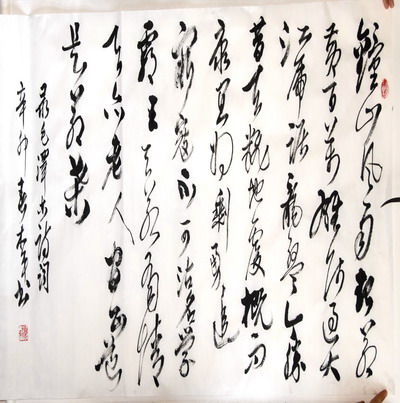 鐘山风雨起苍
黄百万雄师过大
江虎踞龙盘今胜
昔天翻地覆慨而
慷宜将剩勇追
穷寇不可沽名学
霸王天若有情
天亦老人间正道
是沧桑
录毛泽东诗词
辛卯春书